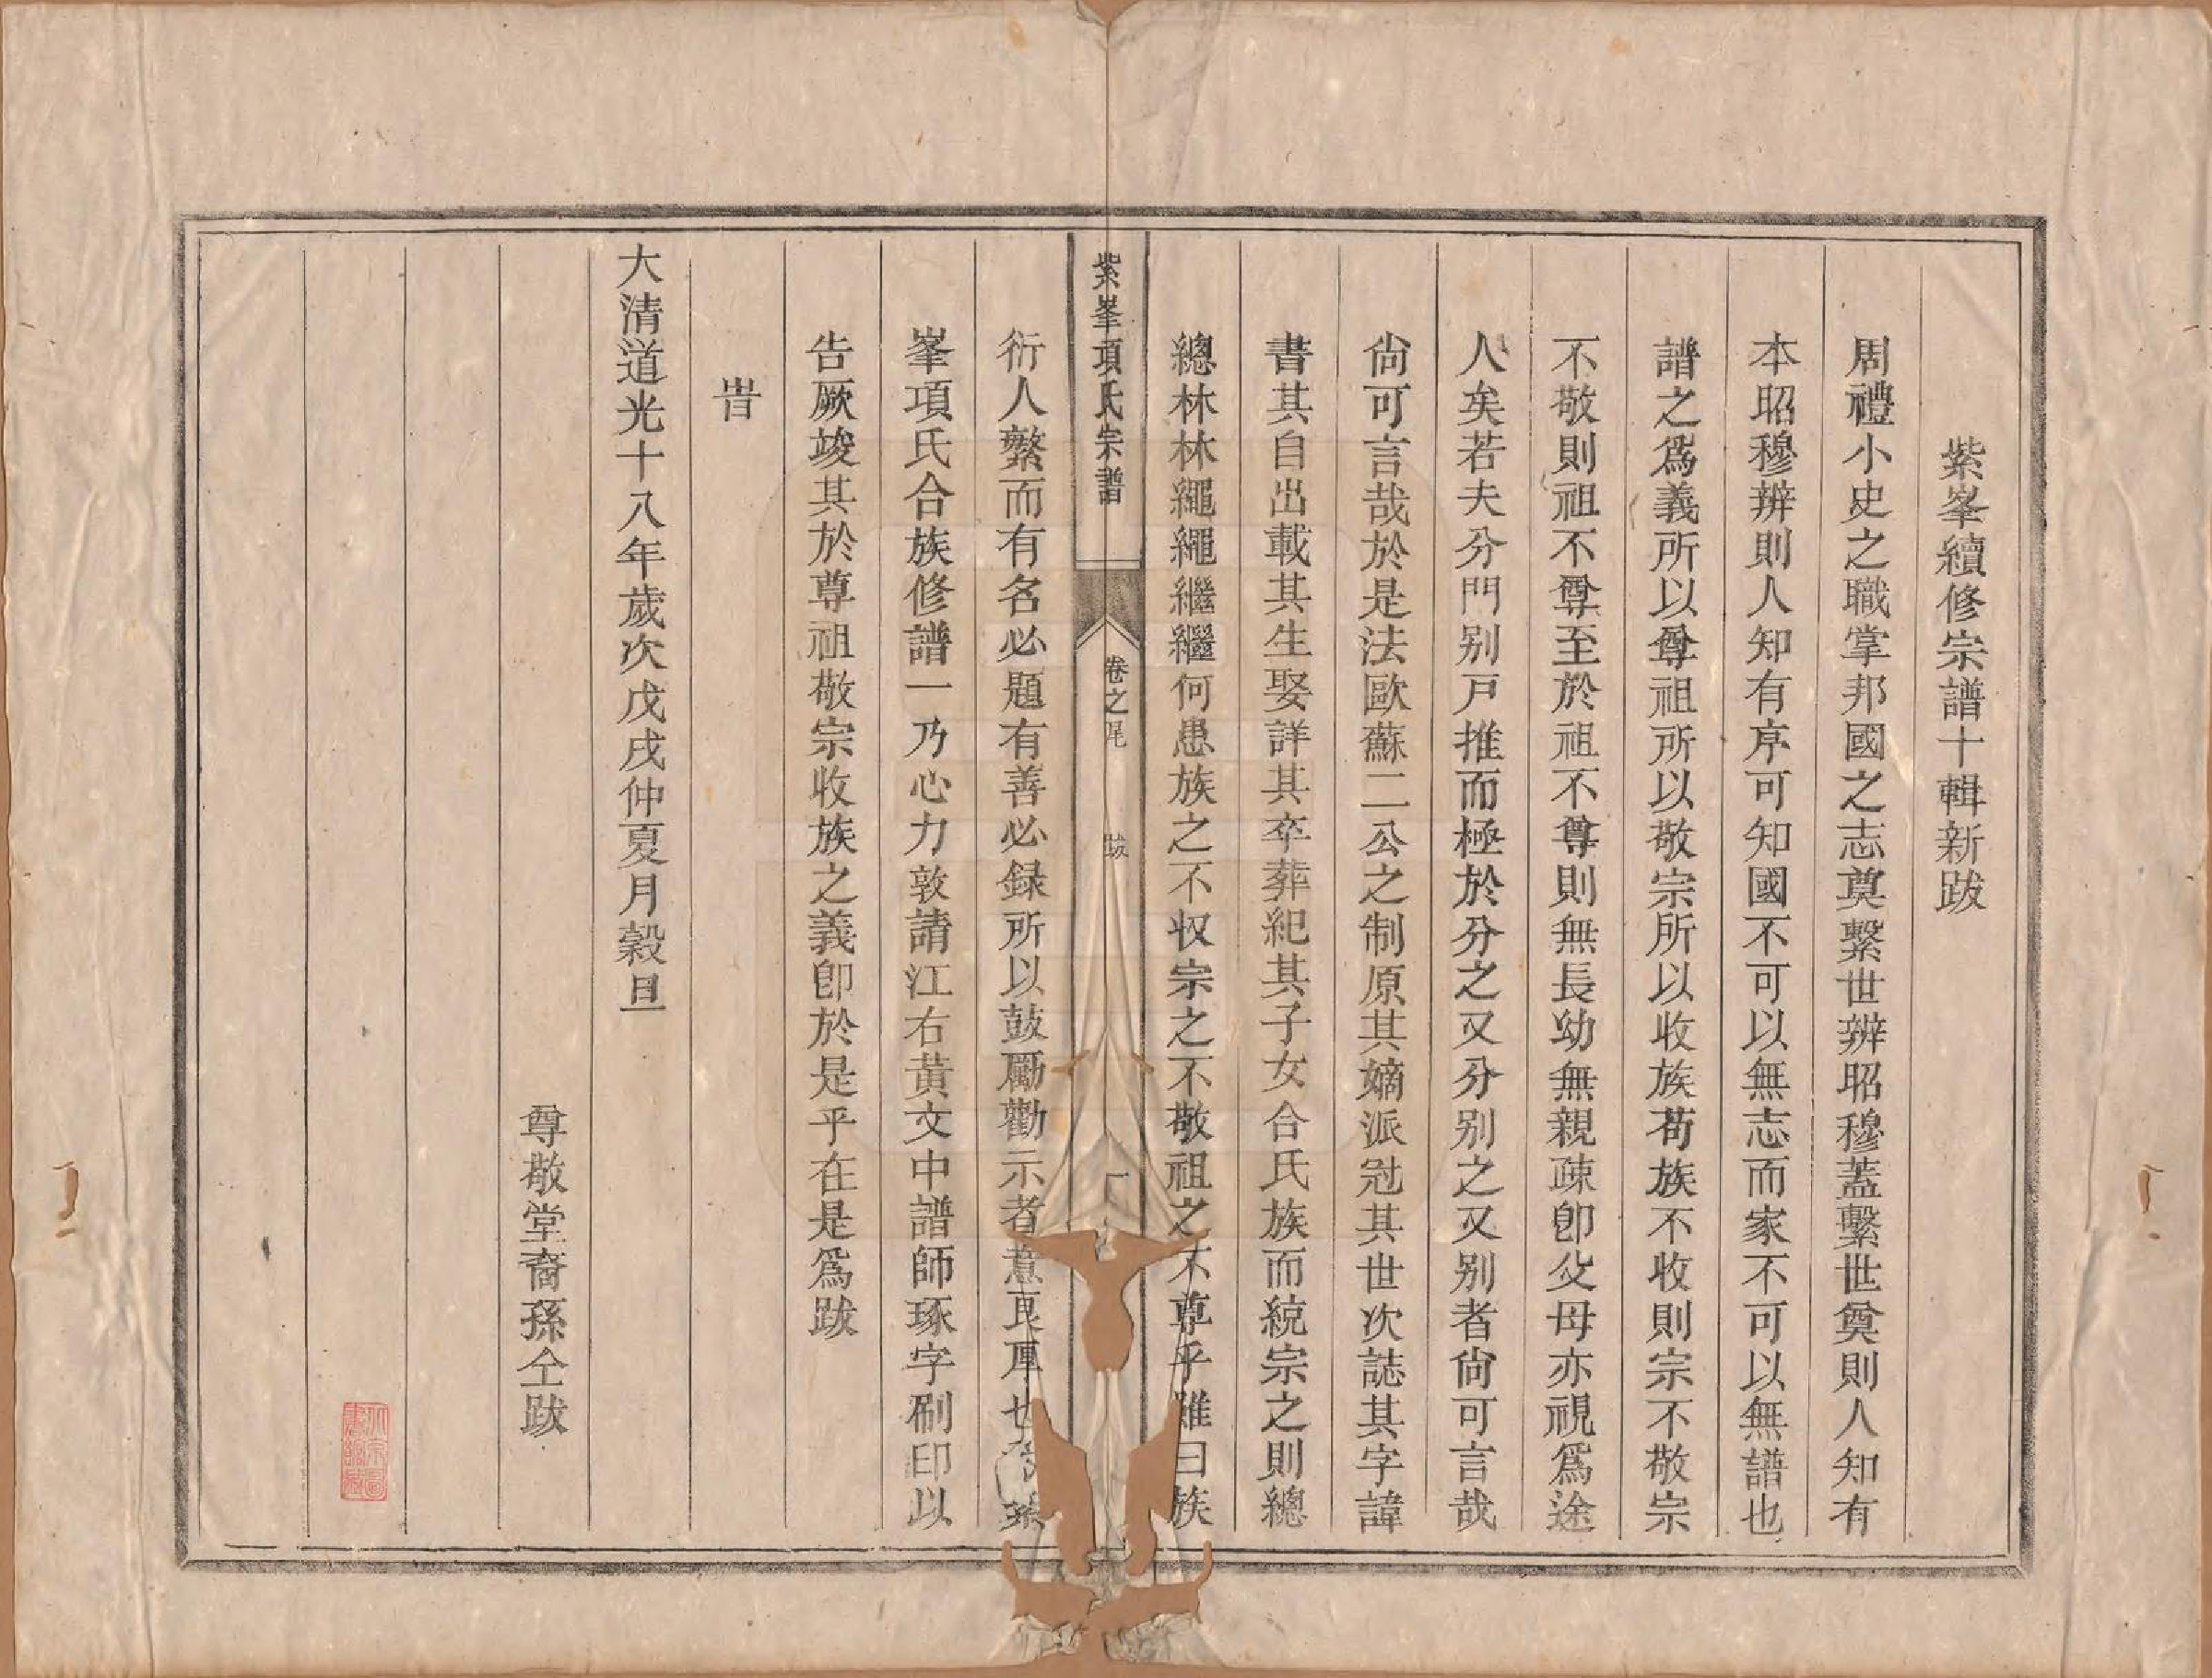 紫峯續修宗譜十輯新跋
周禮小史之職掌邦國之志奠繫世辨昭穆蓋繫世奠則人知有
本昭穆辨則人知有序可知國不可以無志而家不可以無譜也
譜之爲義所以尊祖所以敬宗所以收族苟族不收則宗不敬宗
不敬則祖不尊至於祖不尊則無長幼無親疎卽父母亦視爲途
人矣若夫分門别戸推而極於分之又分别之又别者尙可言哉
尙可言哉於是法歐蘇二公之制原其嫡派冠其世次誌其字諱
書其自出載其生娶詳其卒葬紀其子女合氏族而統宗之則總
總林林繩繩繼繼何患族之不収宗之不敬祖之不尊乎雖曰族
紫峯項氏宗譜 卷之尾 跋
衍人繁而有名必題有善必録所以鼓厲勸示者意良厚也 紫
峯項氏合族修譜一乃心力敦請江右黃文中譜師琢字刷印以
告厥竣其於尊祖敬宗收族之義卽於是乎在是爲跋
旹
大清道光十八年歲次戊戌仲夏月穀旦
尊敬堂裔孫仝跋